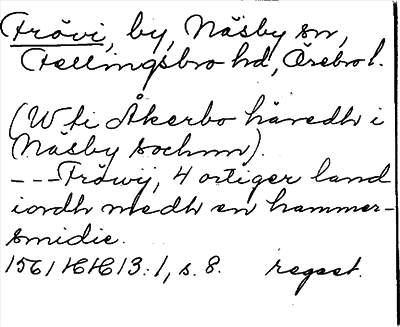 Frövi, by, Näsby sn,
Fellingsbro hd, Örebro l.
(W ti Åkerbo häredh i
Näsby sochnn).
---Fröwij, 4 ortiger land
iordh medh en hammer-
smidie.
1561 HH 13:1, s. 8. regest.